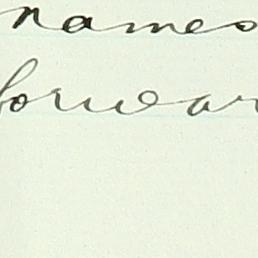 names
forwar